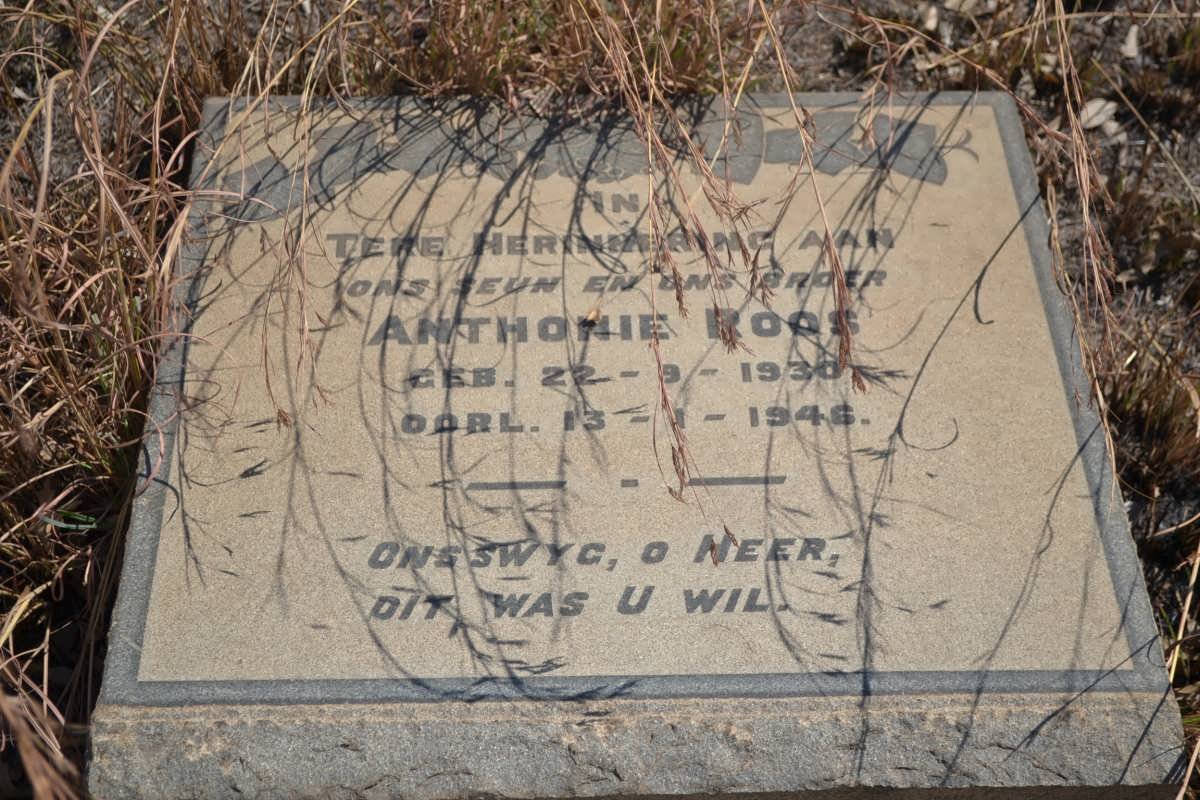 IN
TERE HERINNERING AAN
ONS SEUN EN ONS BROER
ANTHONIE ROOS
GEB. 22 - 9 - 1930
OORL. 13 - 1 - 1946.
ONS SWYG, O HEER,
DIT WAS U WIL.